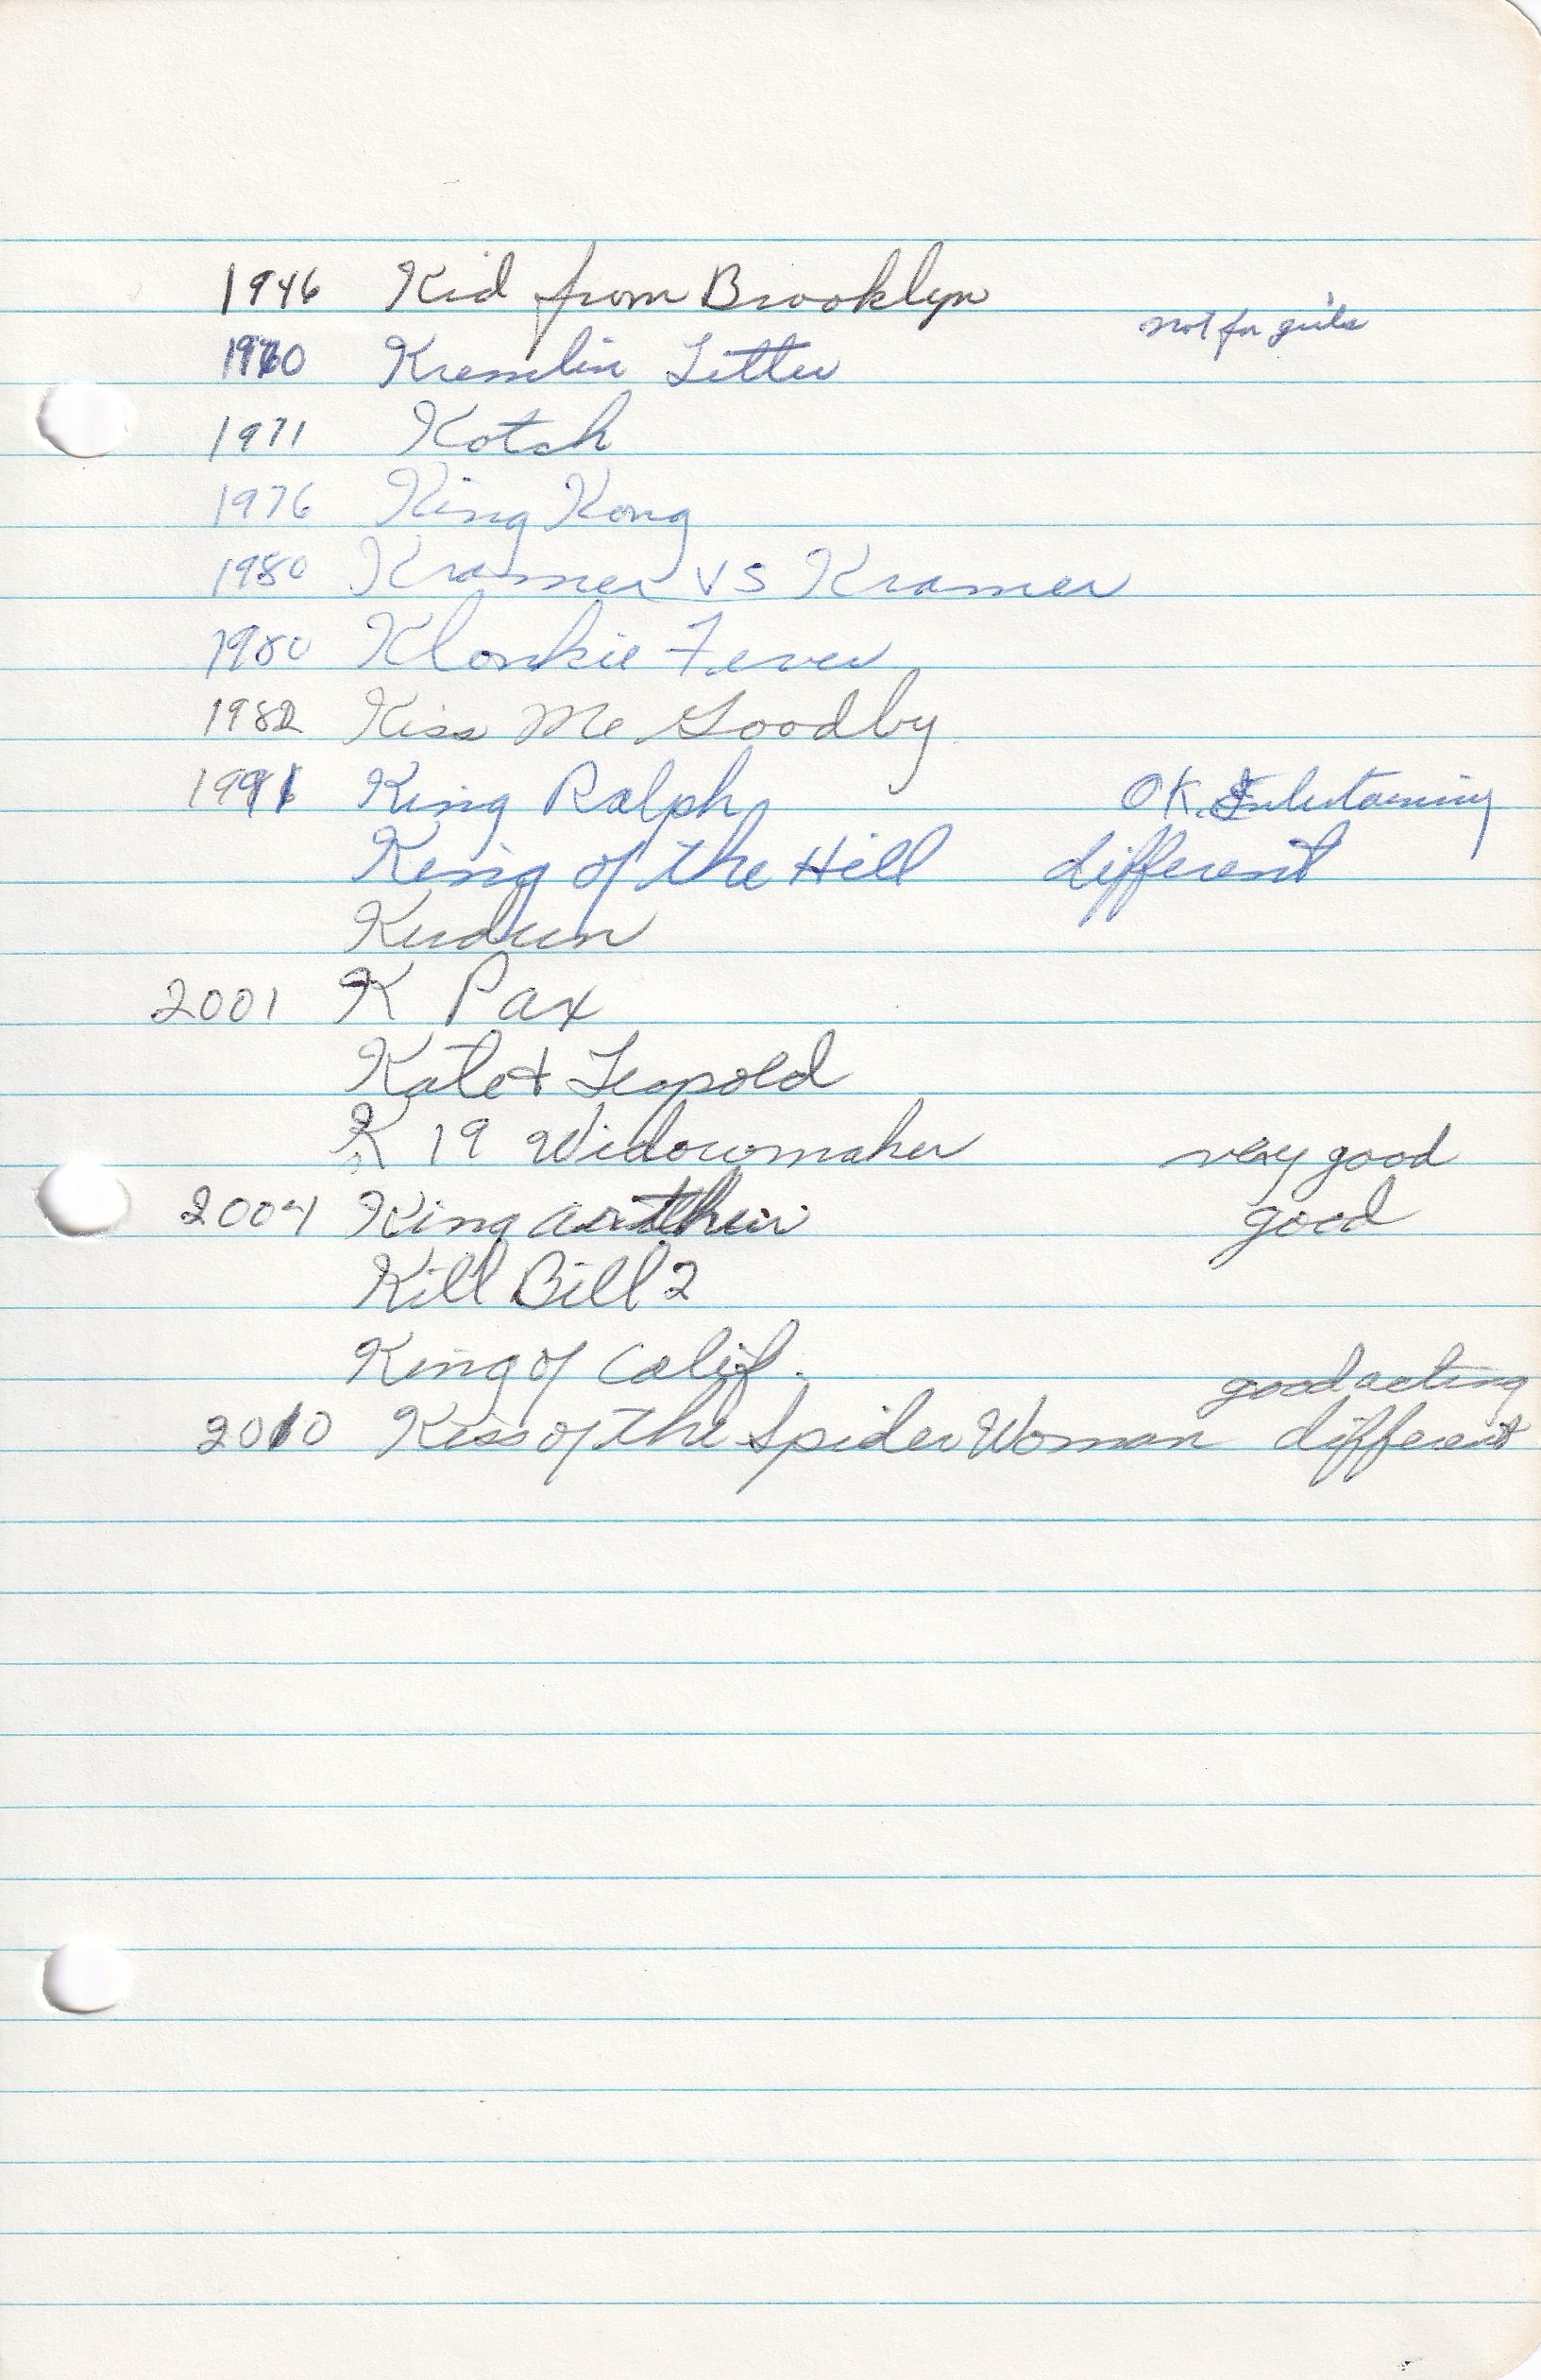 1946 Kid from Brooklyn
not for girls
1970 Kremlin Letter
1971 Kotch
1976 King Kong
1980 Kramer vs Kramer
1980 Klonkie Fever
1982 Kiss Me Goodby
1991 King Ralph OK. Entertaining
King of the Hill different
Kudun
2001 K Pax
Kate + Leopold
K 19 Widowmaker very good
2004 King arthur good
Kill Bill 2
King of Calif.
good acting
2010 Kiss of the Spider Woman different